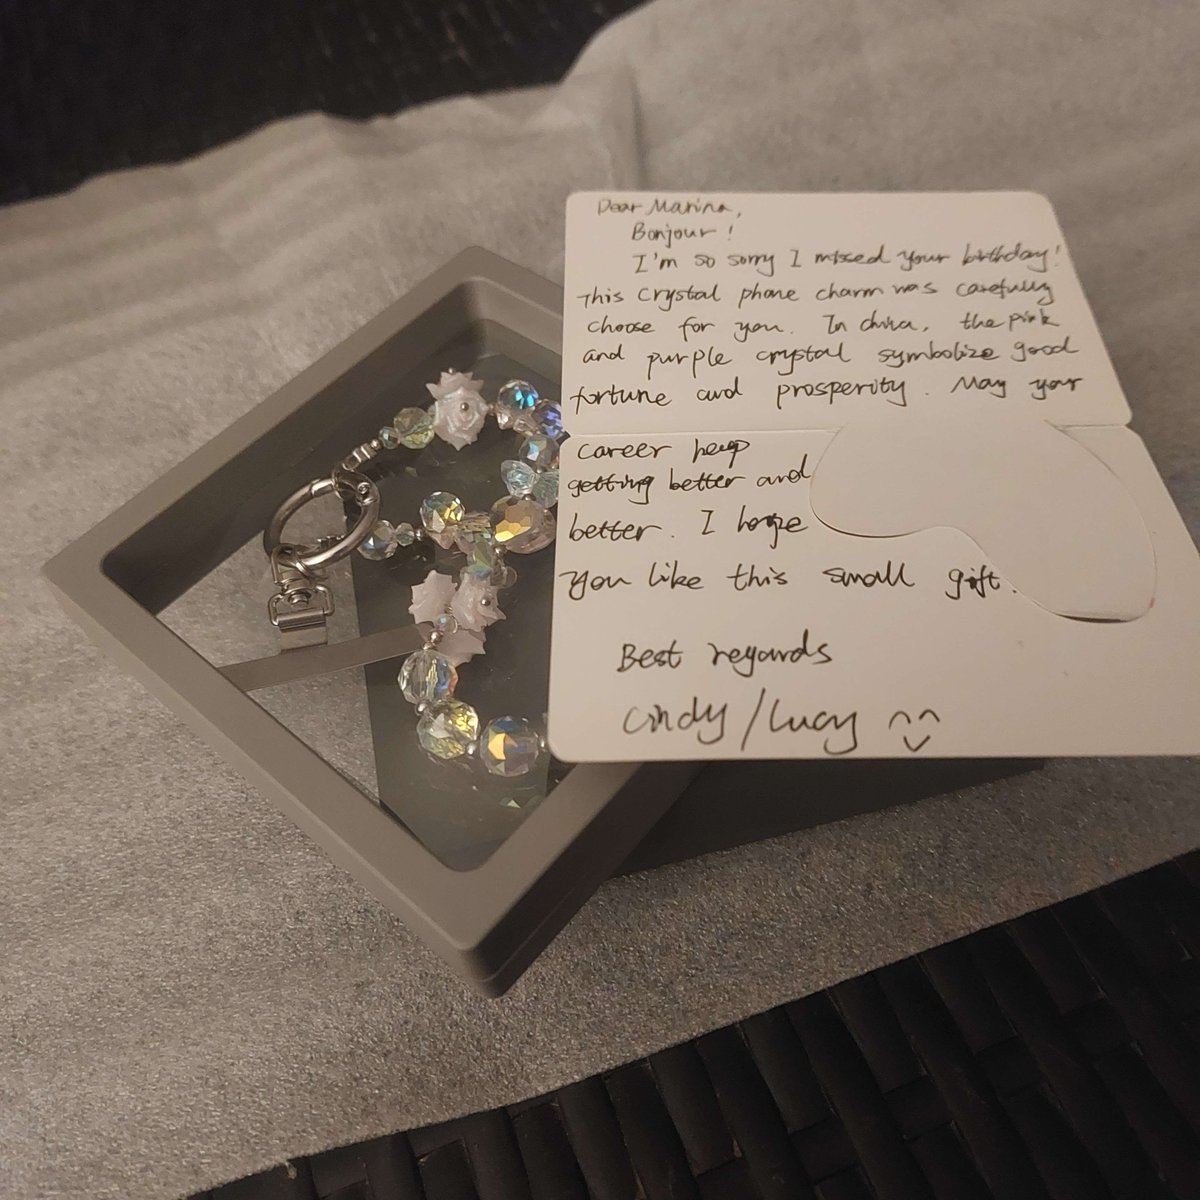 Dear Marina,
Bonjour !
I'm so sorry I missed your birthday!
This crystal phone charm was carefully
choose for you. In china, the pink
and purple crystal symbolize good
fortune and prosperity. May your
career keep
getting better and
better. I hope
you like this small gift.
Best regards
Cindy/Lucy ^^